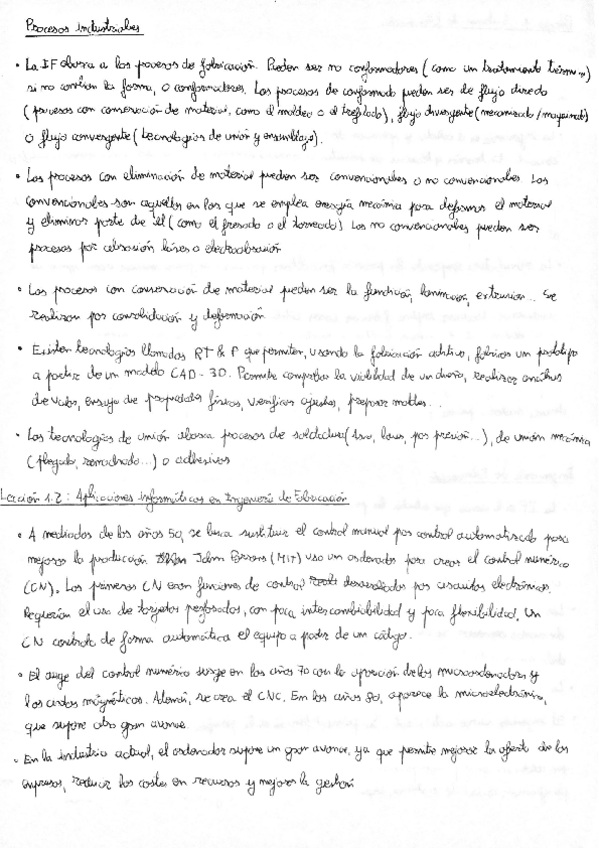 Procesos industriales
• La IF abarca a los procesos de fabricación. Pueden ser no conformadores (como un tratamiento térmico)
si no confieren la forma, o conformadores. Los procesos de conformado pueden ser de flujo directo
(procesos con conservación de material, como el moldeo o el trefilado), flujo divergente (mecanizado/maquinado)
o flujo convergente (tecnologías de unión y ensamblaje).
• Los procesos con eliminación de material pueden ser convencionales o no convencionales. Los
convencionales son aquellos en los que se emplea energía mecánica para deformar el material
y eliminar parte de él (como el fresado o el torneado) Los no convencionales pueden ser
procesos por abrasión láser o electroabrasión
• Los procesos con conservación de material pueden ser la fundición, laminación, extrusión... Se
realizan por consolidación y deformación
• Existen tecnologías llamadas RT & P que permiten, usando la fabricación aditiva, fabricar un prototipo
a partir de un modelo CAD-3D. Permite comprobar la viabilidad de un diseño, realizar análisis
de valor, ensayo de propiedades físicas, verificar ajustes, preparar moldes...
• Las tecnologías de unión abarca procesos de soldadura (láser, por presión...), de unión mecánica
(plegado, remachado...) o adhesivos
Lección 1.2: Aplicaciones Informáticas en Ingeniería de Fabricación
• A mediados de los años 50, se busca sustituir el control manual por control automatizado para
mejorar la producción. John Parsons (MIT) usó un ordenador para crear el control numérico
(CN). Los primeros CN eran funciones de control desarrollados por circuitos electrónicos.
Requerían el uso de tarjetas perforadas, con poca intercambiabilidad y poca flexibilidad. Un
CN controla de forma automática el equipo a partir de un código.
• El auge del control numérico surge en los años 70 con la aparición de los microordenadores y
los discos magnéticos. Además, se crea el CNC. En los años 80, aparece la microelectrónica,
que supone otro gran avance.
• En la industria actual, el ordenador supone un gran avance, ya que permite mejorar la oferta de las
empresas, reducir los costes en recursos y mejorar la gestión